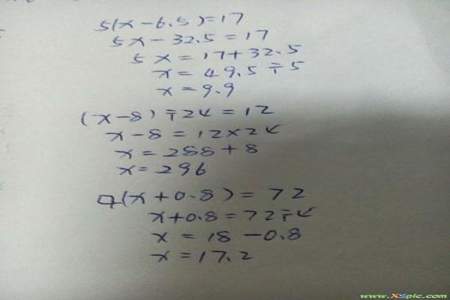 5(x-6.5)=17
5x-32.5=17
5x=17+32.5
x=49.5÷5
x=9.9
(x-8)÷24=12
x-8=12×24
x=288+8
x=296
4(x+0.8)=72
x+0.8=72÷4
x=18-0.8
x=17.2
www.XSpic.com